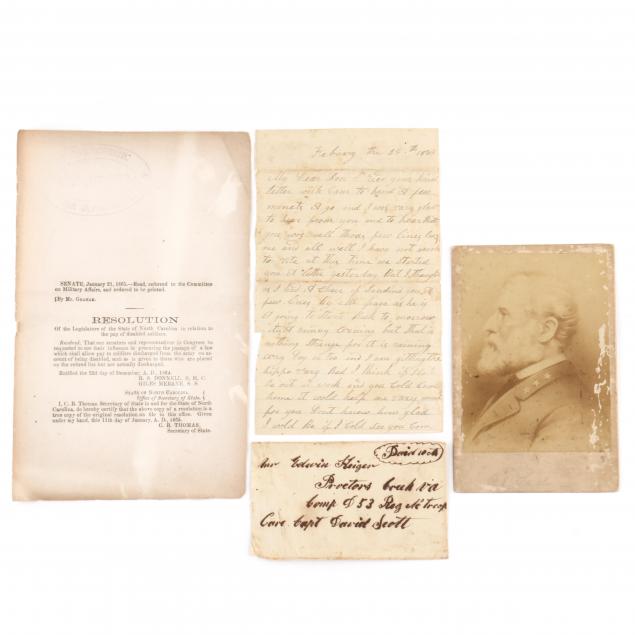 SENATE, January 21, 1865.—Read, referred to the Committee
on Military Affairs, and ordered to be printed.
[By Mr. GRAHAM.
RESOLUTION
Of the Legislature of the State of North Carolina in relation to
the pay of disabled soldiers.
Resolved, That our senators and representatives in Congress be
requested to use their influence in procuring the passage of a law
which shall allow pay to soldiers discharged from the army on ac-
count of being disabled, such as is given to those who are placed
on the retired list but are not actually discharged.
Ratified the 23d day of December, A. D., 1864.
R. S. DONNELL, S. H. C.
GILES MEBANE, S. S.
STATE OF NORTH CAROLINA,
Office of Secretary of State.
I, C. R. Thomas, Secretary of State in and for the State of North
Carolina, do hereby certify that the above copy of a resolution is a
true copy of the original resolution on file in this office. Given
under my hand, this 11th day of January, A. D., 1865.
C. R. THOMAS,
Secretary of State.
Febuary the 24th
My Dear Son I Rec your kind
letter with Care to hand a few
monets a go and I was vary glad
to hear from you and to hear that
you was well those few lines leav
me and all well I have not much
to rite at this time we started
you a letter yesterday But I thought
as I had a chanc of sending you a
few lines by as he is
a going to start back to morrow
it is a rainy evning but that is
nothing strange for it is raining
evry day or two and I am getting the
hippo vary Bad I think if
be out in a week and you Could Come
home it would help me vary much
for you dont know how glad
I would be if I Could see you Com
Paid 10 cts
Mr Edwin
Proctors Creek va
Comp D 53 Reg NC troop
Care Capt David Scott